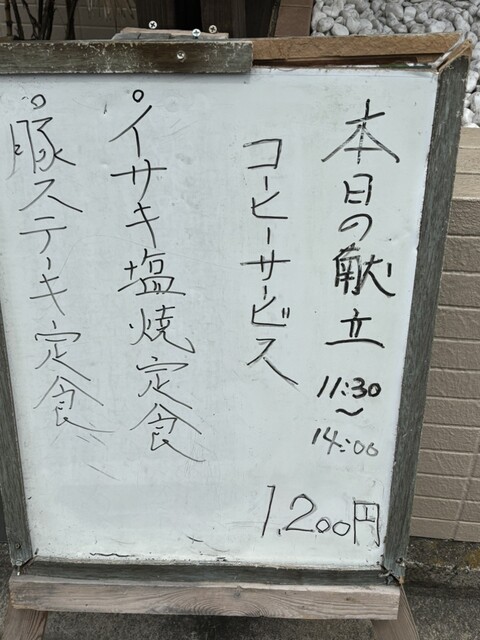 本日の献立
11:30
～
14:00
コーヒーサービス
。イサキ塩焼定食
。豚ステーキ定食
1,200円